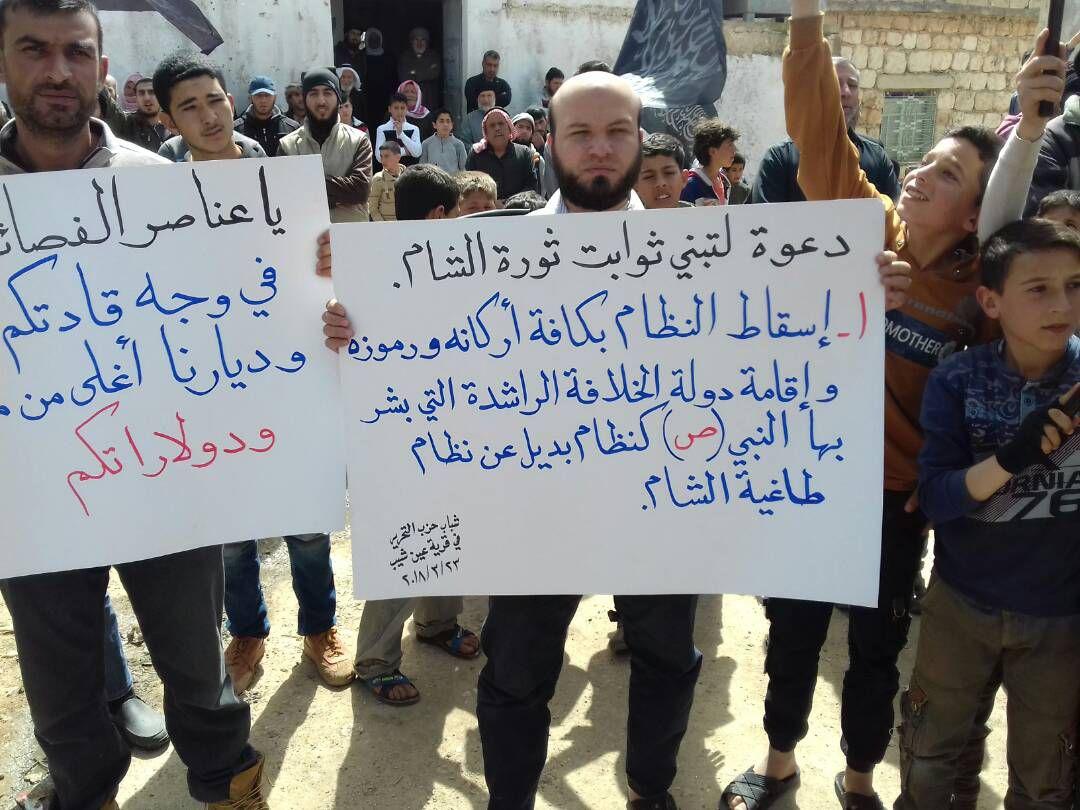 يا عناصر الفصائ
في وجه قادتكم
وديارنا أغلى من
ودولاراتكم
دعوة لتبني ثوابت ثورة الشام.
١- إسقاط النظام بكافة أركانه ورموزه
وإقامة دولة الخلافة الراشدة التي بشر
بها النبي (ص) كنظام بديل عن نظام
طاغية الشام.
شباب حزب التحرير
في قرية عين شيب
٢٠١٨/٣/٢٣
MOTHER
76